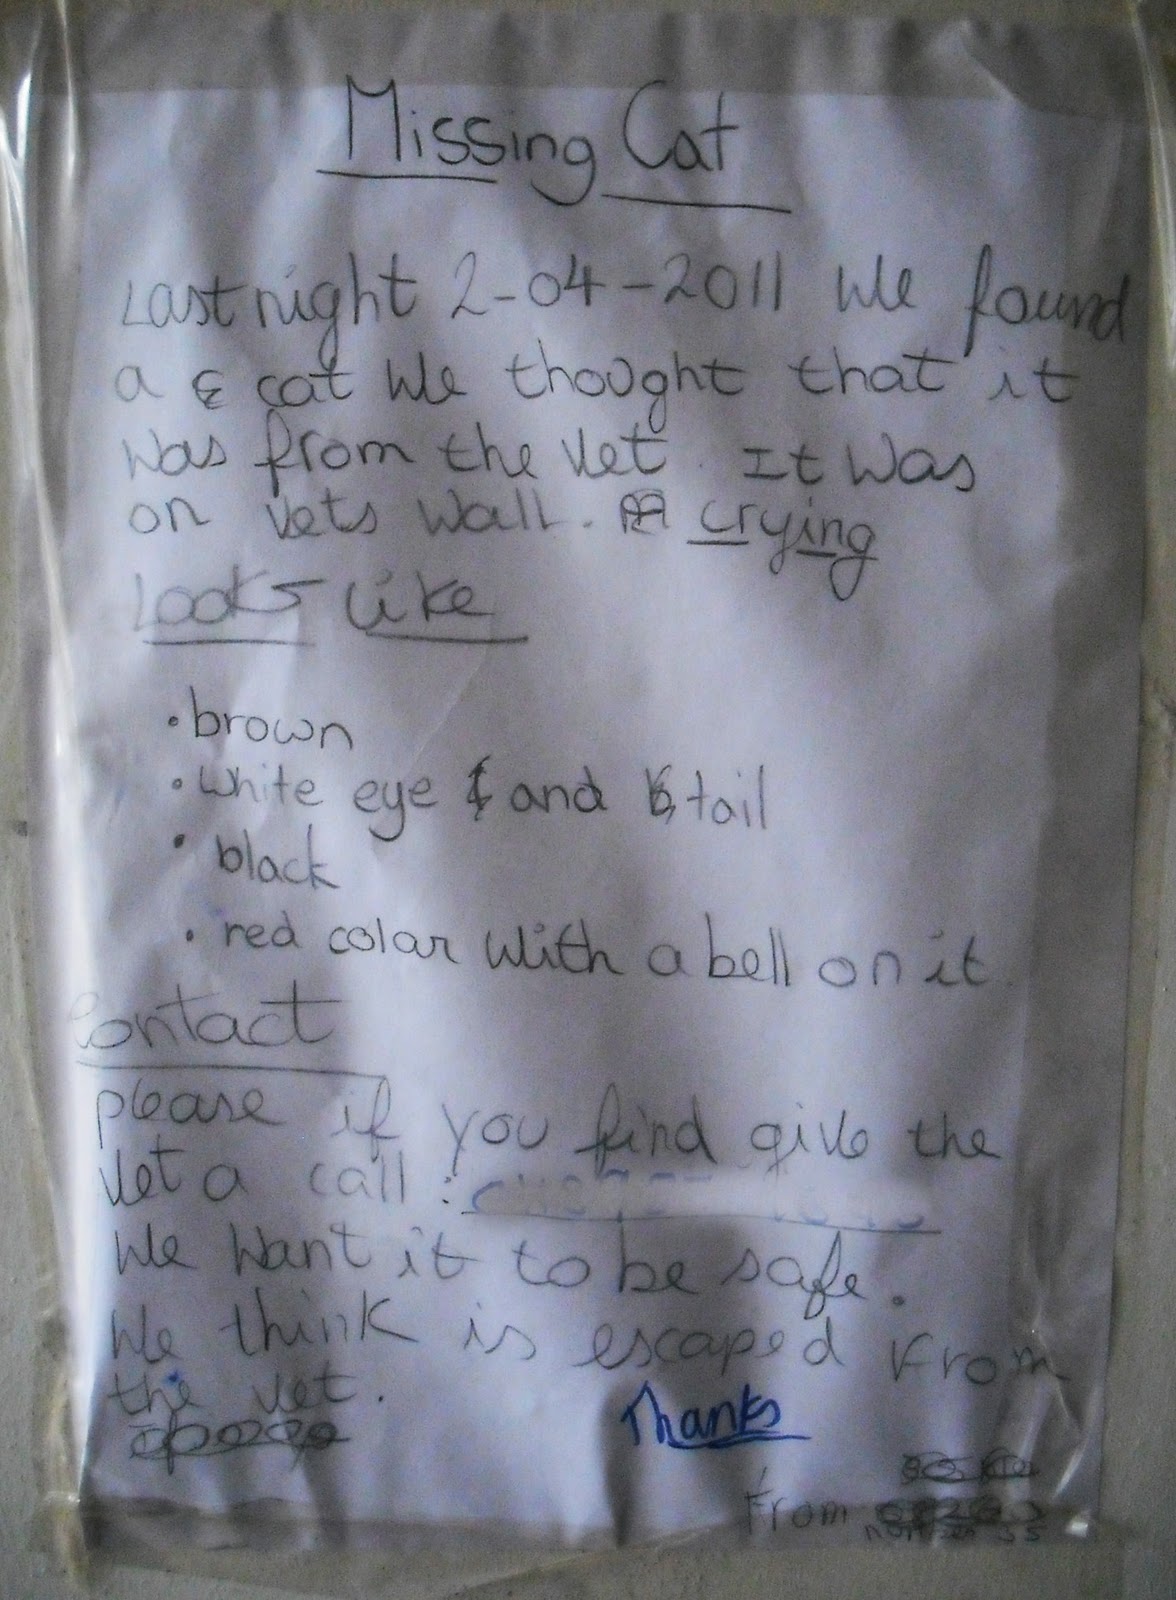 Missing Cat
Last night 2-04-2011 We found
a cat We thought that it
was from the vet. It was
on vets wall. crying
Looks Like
• brown
• white eye and tail
• black
• red colar with a bell on it
Contact
please if you find give the
vet a call :
We want it to be safe.
We think is escaped from
the vet.
Thanks
From
number 35